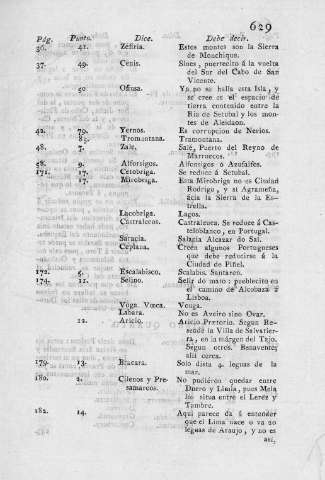 629
Pág. Punto. Dice. Debe decir.
36. 41. Zefiria. Estos montes son la Sierra
de Monchique.
37. 49. Cenis. Sines, puertecito á la vuelta
del Sur del Cabo de San
Vicente.
50 Ofiusa. Ya no se halla esta Isla, y
se cree es el espacio de
tierra contenido entre la
Ria de Setubal y los mon-
tes de
42. 79. Yernos. Es corrupcion de Nerios.
85. Tromontana. Tramontana.
48. 7. Zale. Salé, Puerto del Reyno de
Marruecos.
58. 9. Alforsigos. Alfonsigos ó Azufaifos.
171. 17. Cetobriga. Se reduce á Setubal.
17. Mirobriga. Esta Mirobriga no es Ciudad
Rodrigo, y sí
ácia la Sierra de la Es-
trella.
Lacobriga. Lagos.
Castraleucos. Castraleuca. Se reduce á Cas-
teloblanco, en Portugal.
Salacia Alcazar do Sal.
Creen algunos Portugueses
que debe reducirse á la
Ciudad de Piñel.
172. 9. Escalabisco. Scalabis. Santaren.
174. 12. Selino. Selir do mato: pueblecito en
el camino de Alcobaza á
Lisboa.
Voga. Voeca. Vouga.
Labara. No es Aveiro sino Ovar.
12. Aricio. Aricio Pretorio. Segun Re-
sende la Villa de Salvatier-
ra, en la márgen del Tajo.
Segun otros, Benavente;
allí cerca.
179. 13. Bracara. Solo dista 4. leguas de la
mar.
180. 2. Cilenos y Pre- No pudiéron quedar entre
samarcos. Duero y Limia, pues Mela
los situa entre el Lerez y
Tambre.
182. 14. Aqui parece da á entender
que el Lima nace o va 20
leguas de Araujo, y no es
así,